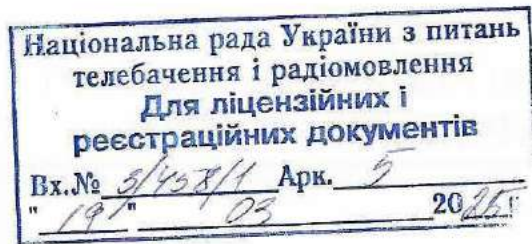 Національна рада України з питань
телебачення і радіомовлення
Для ліцензійних і
реєстраційних документів
Вх.№ 3/458/1 Арк. 5
" 19 " 03 2025 р